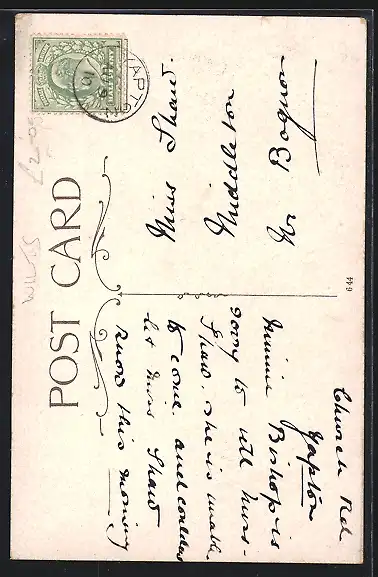 POST CARD
YAPTON
Miss Shaw.
Middleton
Nr Bognor
Church Rd
Yapton
Minnie Bishop is
sorry to tell Miss
Shaw. she is unable
to come. and couldnt
let Miss Shaw
know this morning
644
WILTS
£2-00